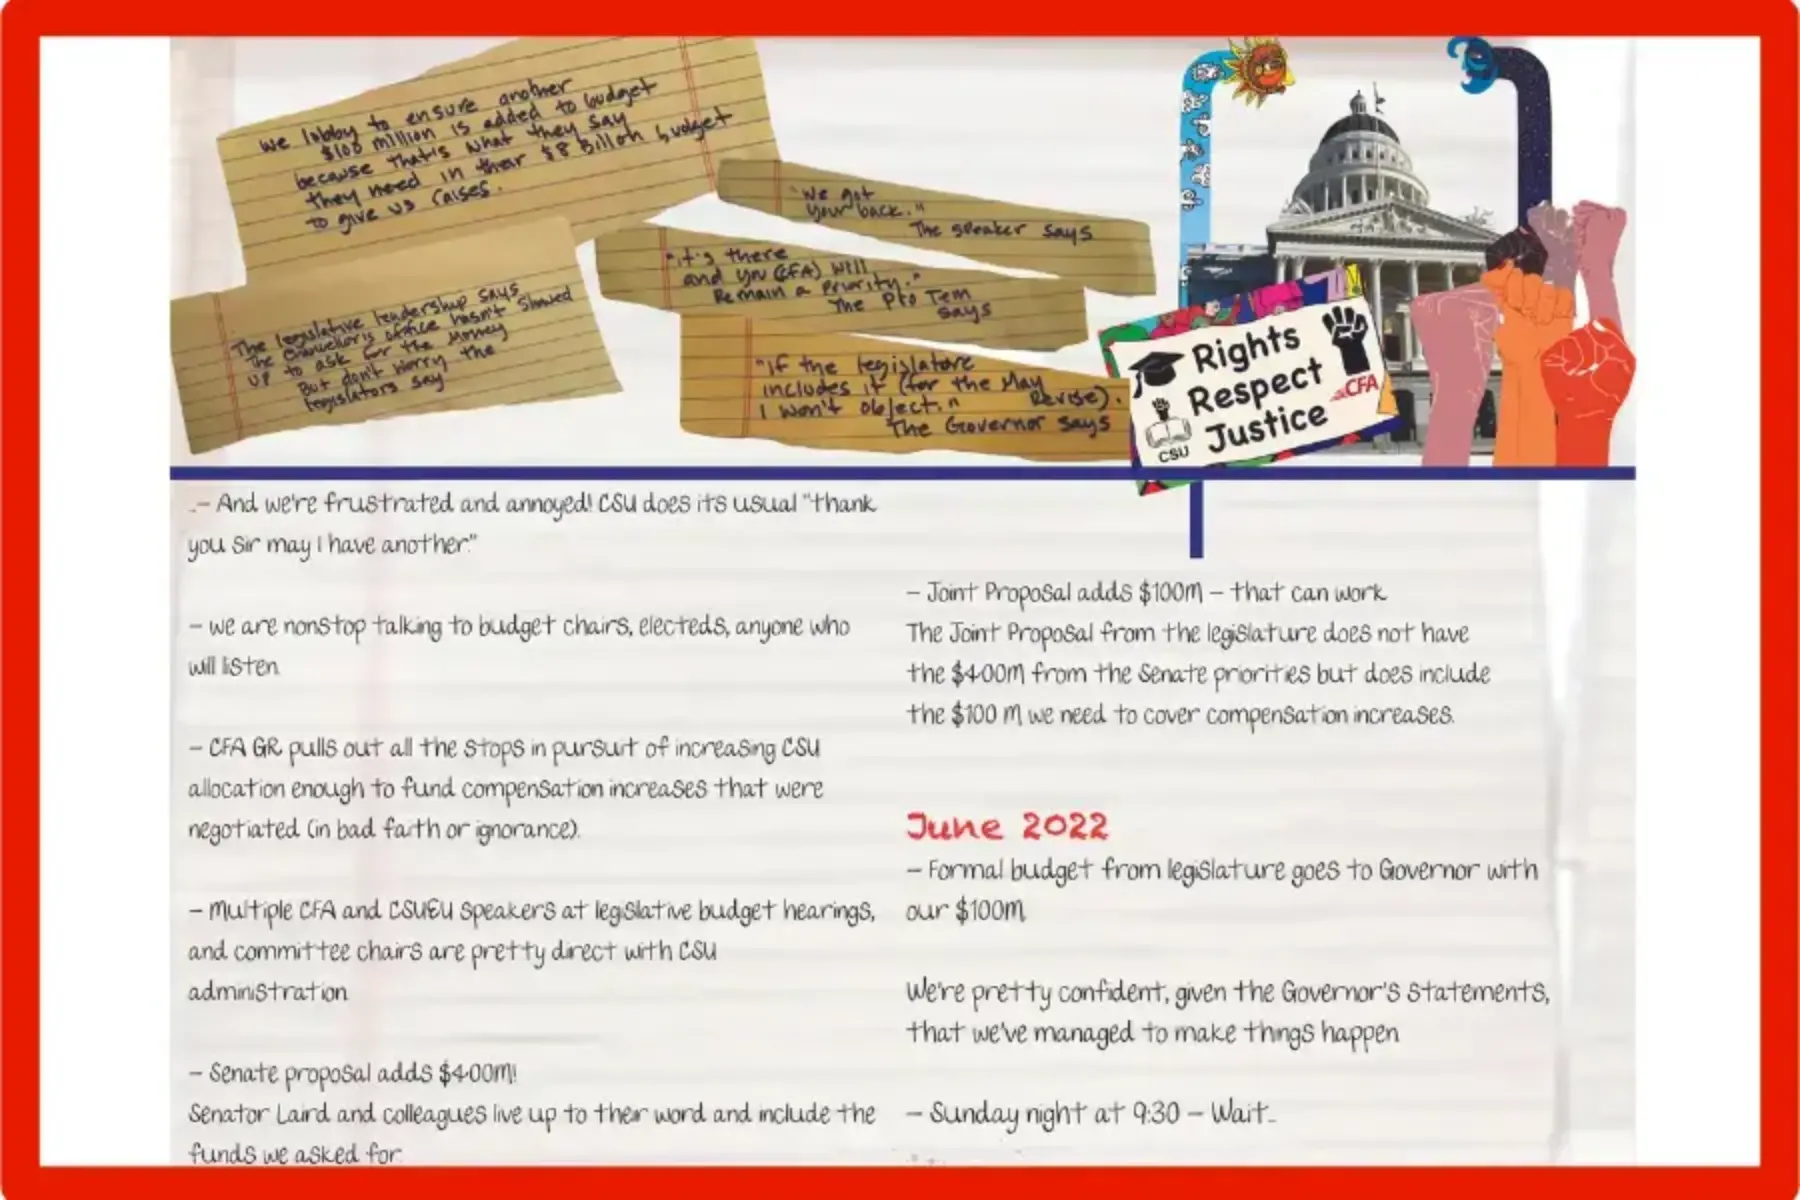 we lobby to ensure another
$100 million is added to budget
because that's what they say
they need in their $8 Billon budget
to give us raises.
The legislative leadership says
The Chancellor's office hasn't showed
up to ask for the Money
But don't worry the
legislators say
"We got
your back."
The speaker says
"it's there
and you (CFA) will
Remain a priority."
The Pro Tem
says
"if the legislatore
includes it (for the May
Revise).
I won't object."
The Governor says
Rights
Respect
Justice
CFA
CSU
.– And we're frustrated and annoyed! CSU does its usual "thank
you sir may I have another."
– we are nonstop talking to budget chairs, electeds, anyone who
will listen.
– CFA GR pulls out all the stops in pursuit of increasing CSU
allocation enough to fund compensation increases that were
negotiated (in bad faith or ignorance).
– Multiple CFA and CSUEU speakers at legislative budget hearings,
and committee chairs are pretty direct with CSU
administration.
– Senate proposal adds $400M!
Senator Laird and colleagues live up to their word and include the
funds we asked for.
– Joint Proposal adds $100M – that can work.
The Joint Proposal from the legislature does not have
the $400M from the Senate priorities but does include
the $100 M we need to cover compensation increases.
June 2022
– Formal budget from legislature goes to Governor with
our $100M.
We're pretty confident, given the Governor's statements,
that we've managed to make things happen
– Sunday night at 9:30 – Wait...